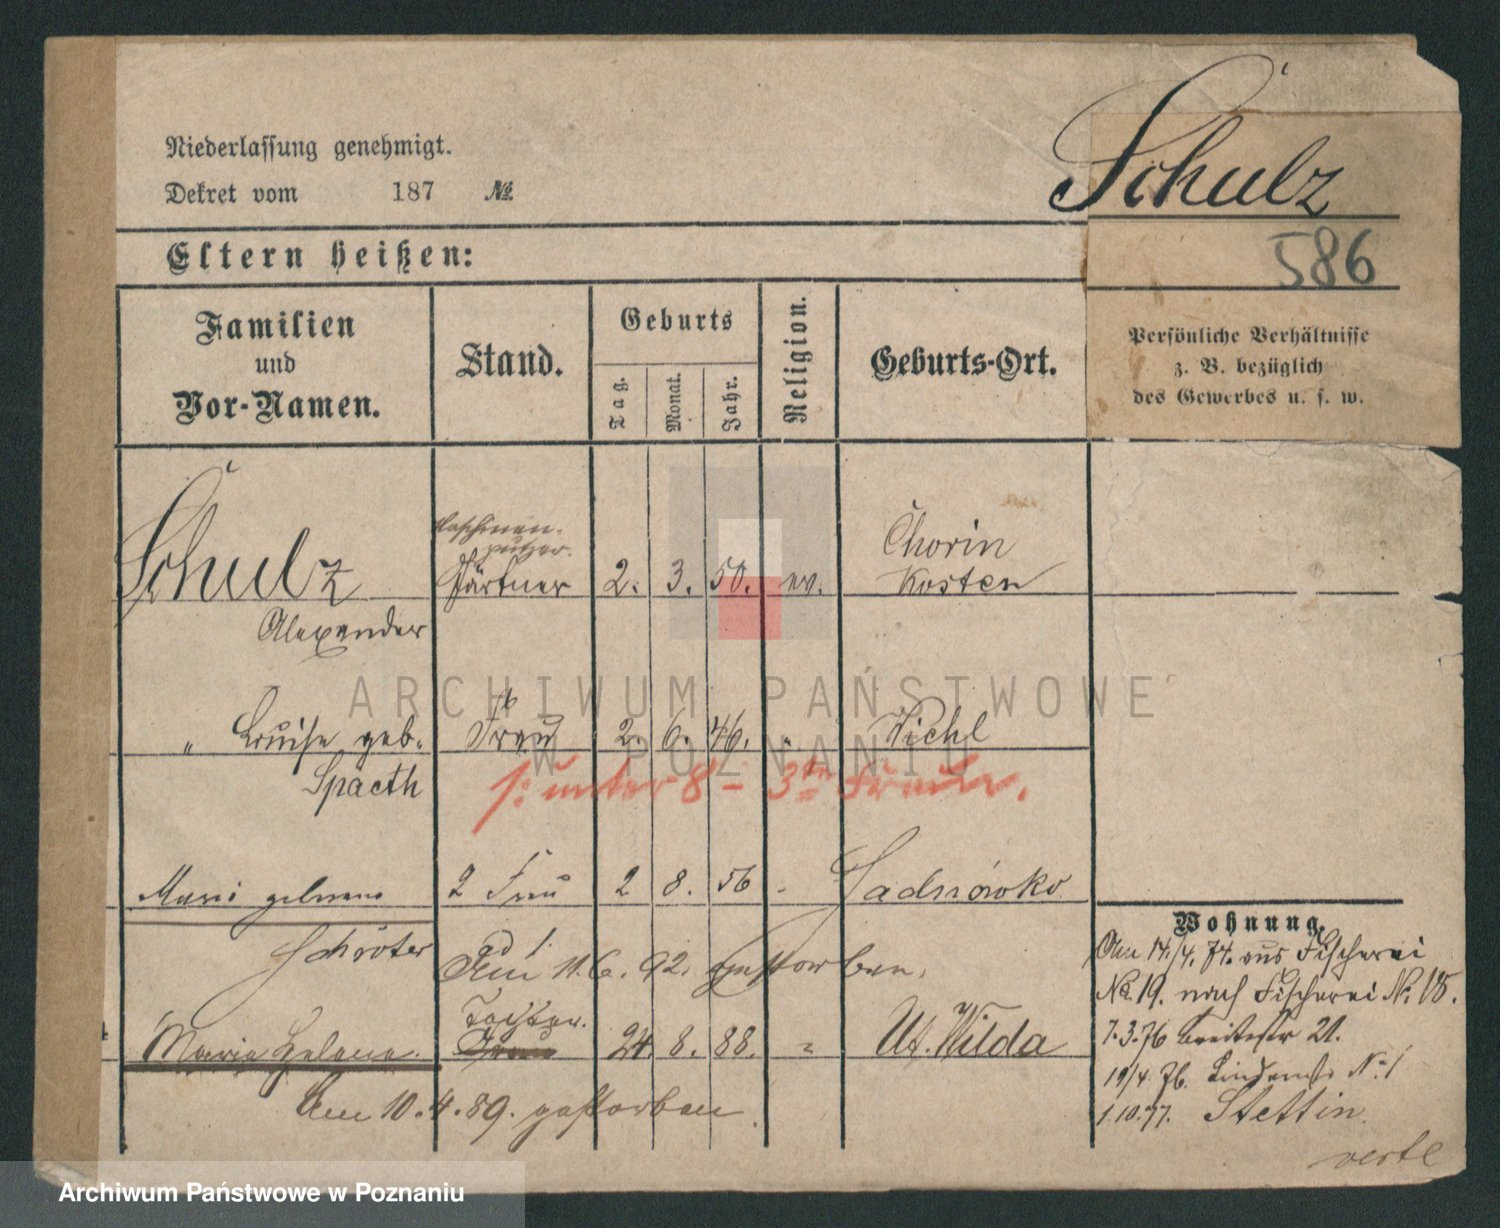 Schulz
Niederlassung genehmigt.
Dekret vom 187 №
586
Eltern heißen:
Familien
und
Vor-Namen.
Stand.
Geburts
Tag.
Monat.
Jahr.
Religion.
Geburts-Ort.
Persönliche Verhältnisse
z. B. bezüglich
des Gewerbes u. s. w.
Maschinen-
putzer.
Chorin
Schulz Gärtner 2. 3. 50. ev. Kosten
Alexander
ARCHIWUM PAŃSTWOWE
W POZNANIU
" Louise geb. Frau 2. 6. 46. "
Spaeth
1: unter 8 - 3te Frau
Marie geborene 2 Frau 2 8. 56 -
Schröter
ad 1.
Am 11. 6. 92. gestorben.
Tochter.
Maria Helene. Frau 24. 8. 88. " Ut. Wilda
Am 10. 4. 89. gestorben
Wohnung.
Am 14./4. 74. aus Fischerei
No. 19. nach Fischerei No. 18.
7. 3. 76 Breitestr 21.
19/4. 76. Lindenstr No. 1
1. 10. 77. Stettin.
verte
Archiwum Państwowe w Poznaniu